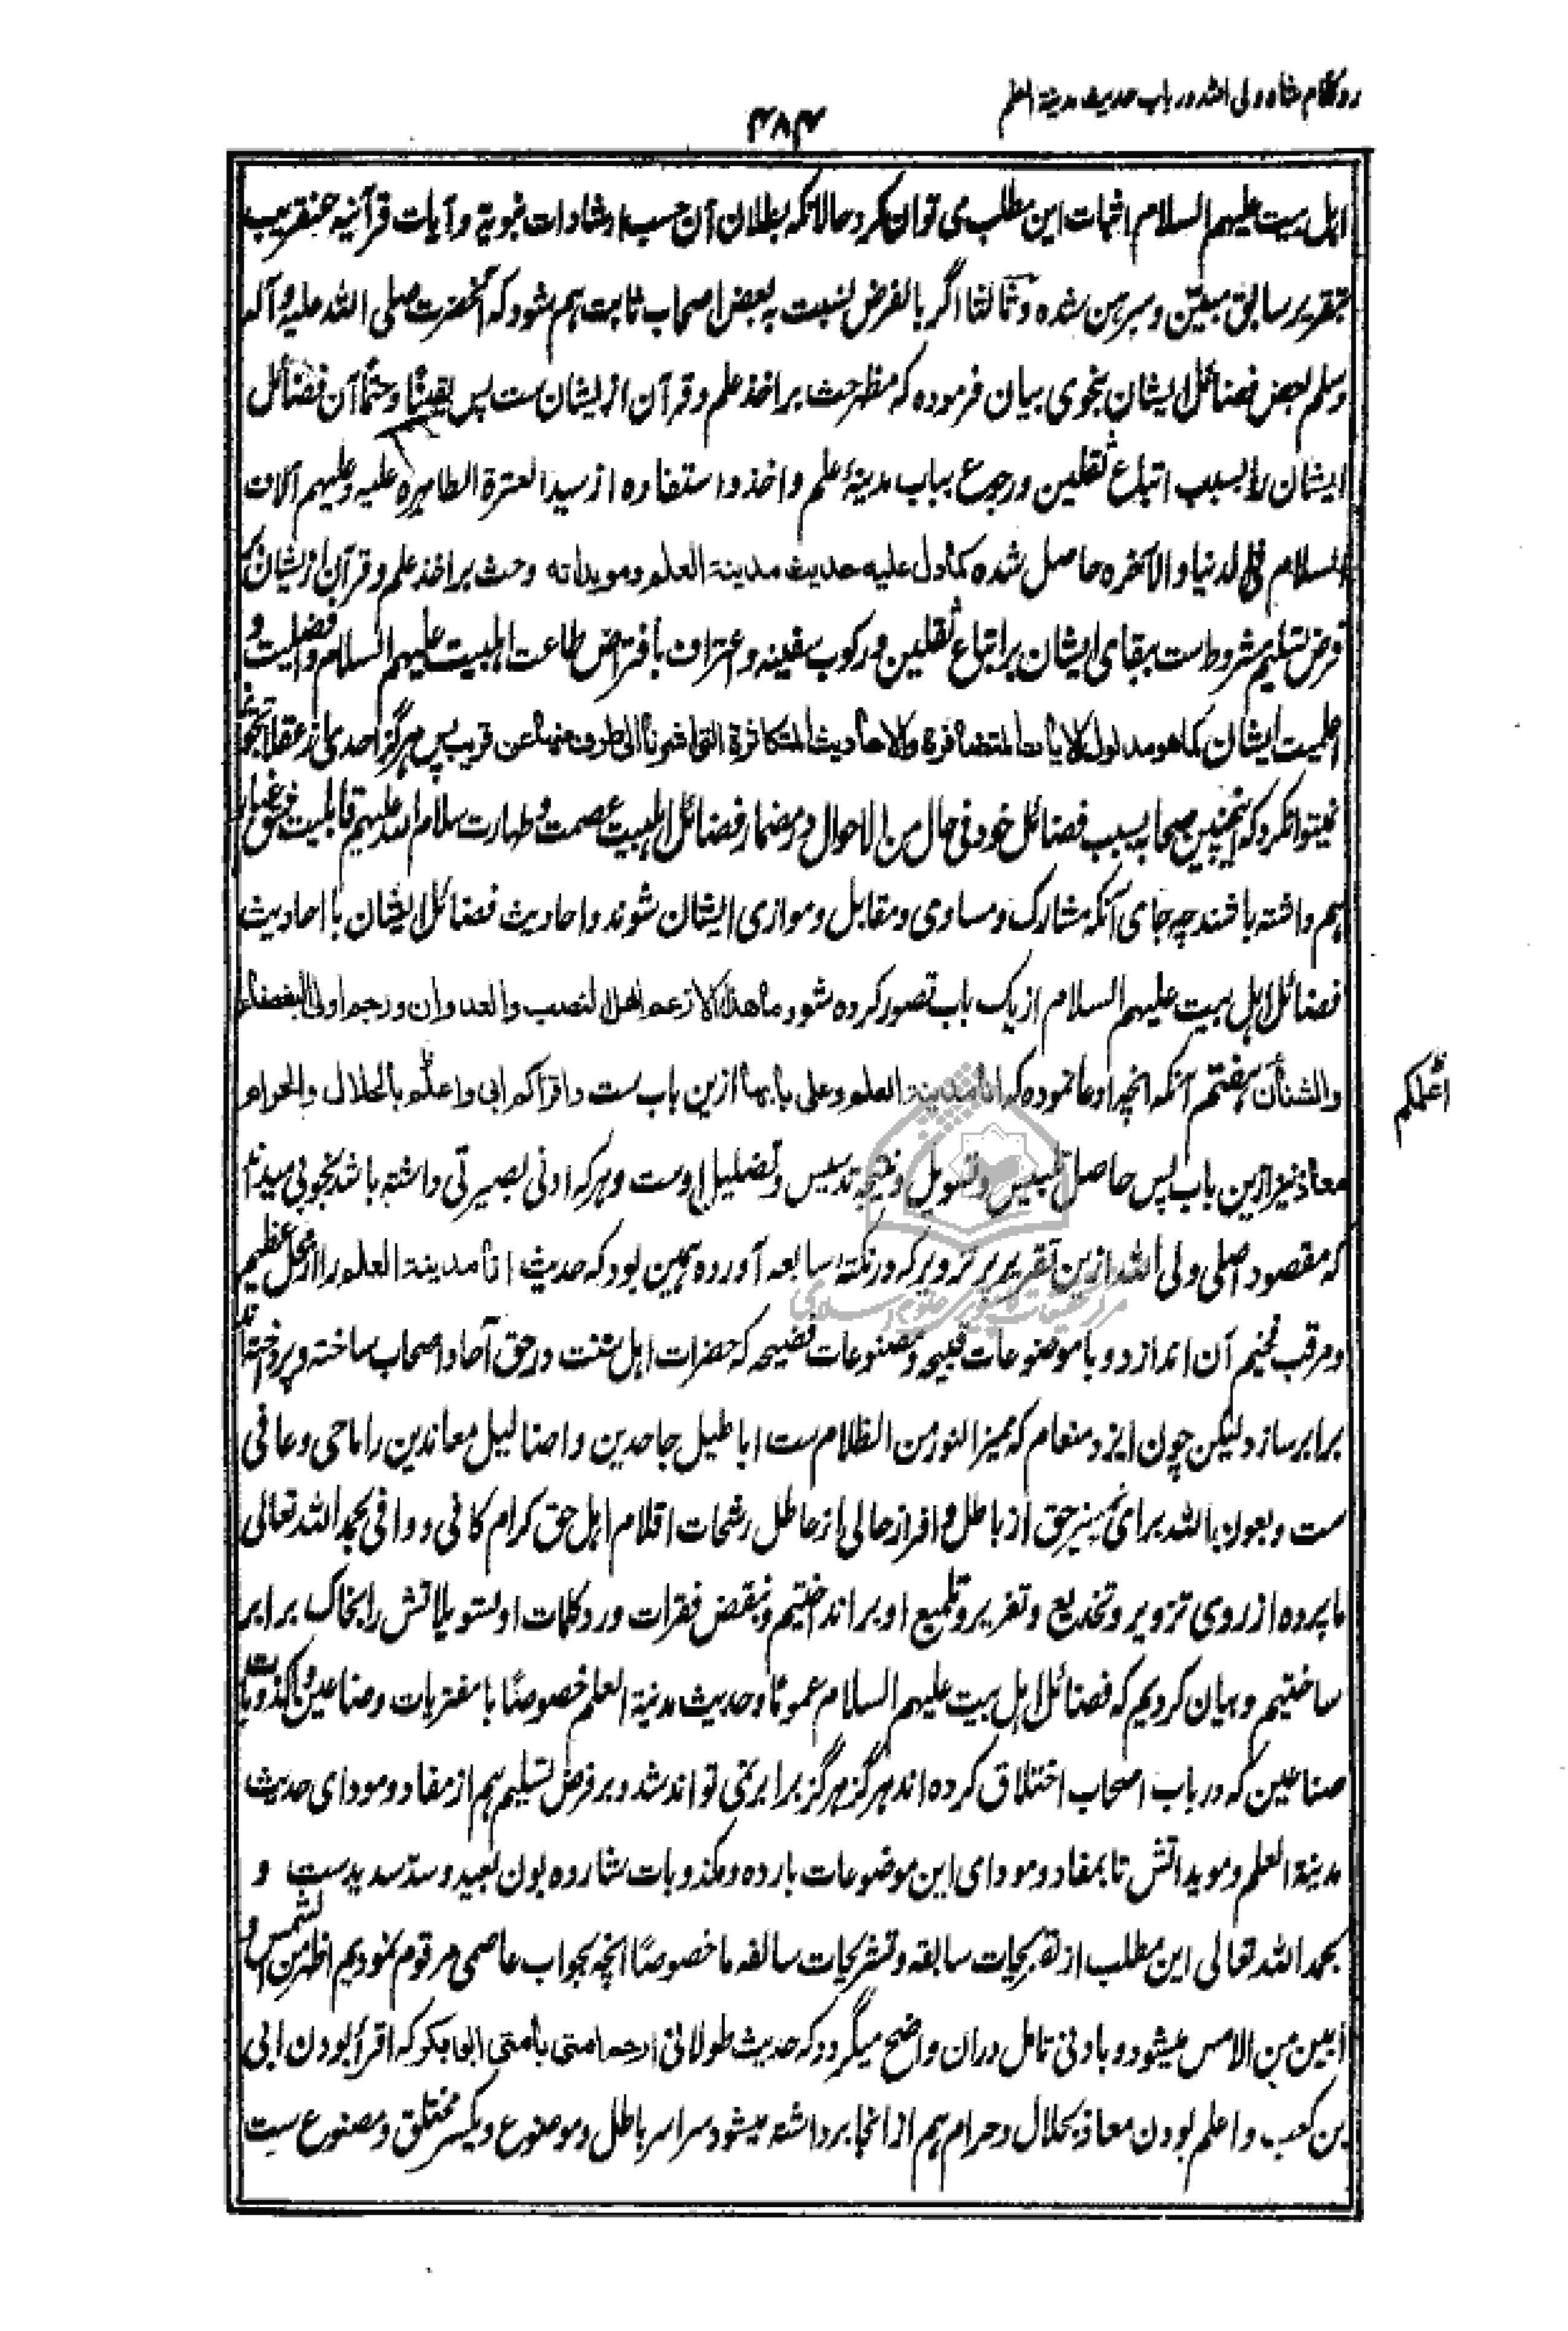 رد کلام شاه ولی الله در باب حدیث مدینة العلم
۴۸۴
اہل بیت علیہم السلام اثبات این مطلب می توان کرد حالانکہ بطلان آن حسب ارشادات نبویۃ و آیات قرآنیہ عنقریب
بتقریر سابق مبیّن و مبرہن شدہ و ثالثا اگر بالفرض نسبت بہ بعض اصحاب ثابت ہم شود کہ آنحضرت صلی اللہ علیہ و آلہ
وسلم بعض فضائل ایشان بنحوی بیان فرمودہ کہ مظہر حث بر اخذ علم و قرآن از ایشان ست پس یقینًا و حتمًا آن فضائل
ایشان را بسبب اتباع ثقلین و رجوع بباب مدینۂ علم و اخذ و استفادہ از سید العترۃ الطاہرہ علیہ و علیہم آلاف
السلام فی الدنیا و الآخرہ حاصل شدہ کما دل علیہ حدیث مدینۃ العلم و مویداتہ و حث بر اخذ علم و قرآن از یشان بر
فرض تسلیم مشروط ست ببقای ایشان بر اتباع ثقلین و رکوب سفینہ و اعتراف بافتراض طاعت اہلبیت علیہم السلام و افضلیت و
اعلمیت ایشان کما هو مدلول الآیات المتضافرة والاحادیث المتکاثرة التی اشرنا الی طرف منها عن قریب پس ہرگز احدی از عقلا تجویز
نمیتواند کرد کہ اینچنین صحابہ بسبب فضائل خود فی حال من الاحوال در مضمار فضائل اہلبیت عصمت و طہارت سلام اللہ علیہم قابلیت خوض غبار
ہم داشتہ باشند چہ جای آنکہ مشارک و مساوی و مقابل و موازی ایشان شوند و احادیث فضائل ایشان با احادیث
فضائل اہل بیت علیہم السلام از یک باب تصور کردہ شود ما هذا الا زعم اهل النصب والعدوان و رجم اولی البغضاء
والشنآن ہفتم آنکہ انچہ ادعا نمودہ کہ انا مدینة العلم و علی بابها ازین باب ست و اقرأکم ابی و اعلمکم بالحلال والحرام
اَعلمکم
معاذ نیز ازین باب پس حاصل تلبیس و تسویل و نتیجہ تدسیس و تضلیل اوست و ہر کہ ادنی بصیرتی داشتہ باشد بخوبی میداند
کہ مقصود اصلی ولی اللہ ازین تقریر پر تزویر کہ در نکتۂ سابعہ آوردہ ہمین بود کہ حدیث انا مدینة العلم را از محل عظیم
و مرقب فخیم آن اندازد و با موضوعات قبیحہ و مصنوعات فضیحہ کہ حضرات اہل سنت در حق آحاد اصحاب ساختہ و پرداختہ اند
برابر سازد لیکن چون ایزد منعام کہ ممیز النور من الظلام ست اباطیل جاحدین و اضالیل معاندین را ماحی و عافی
ست و بعون باللہ برای تمییز حق از باطل و افراز حالی از عاطل رشحات اقلام اہل حق کرام کافی و وافی بحمد اللہ تعالی
ما پردہ از روی تزویر و تخدیع و تغریر و تلمیع او بر انداختیم و بنقض فقرات و رد کلمات او تسویلاتش را بخاک برابر
ساختیم و بیان کردیم کہ فضائل اہل بیت علیہم السلام عمومًا و حدیث مدینۃ العلم خصوصًا با مفتریات وضاعین و مکذوبات
صناعین کہ در باب اصحاب اختلاق کردہ اند ہرگز ہرگز برابر نمی تواند شد و بر فرض تسلیم ہم از مفاد و مودای حدیث
مدینۃ العلم و مویداتش تا بمفاد و مودای این موضوعات باردہ و مکذوبات شاردہ بون بعید و سدّ سدید ست و
بحمد اللہ تعالی این مطلب از تصریحات سابقہ و تشریحات سالفہ ما خصوصًا انچہ بجواب عاصمی مرقوم نمودیم اظہر من الشمس و
ابین من الامس میشود و بادنی تامل دران واضح میگردد کہ حدیث طولانی ارحم امتی بامتی ابوبکر کہ اقرأ بودن ابی
بن کعب و اعلم بودن معاذ بحلال و حرام ہم از انجا برداشتہ میشود سراسر باطل و موضوع و یکسر مختلق و مصنوع ست
مرکز تحقیقات کامپیوتری علوم اسلامی